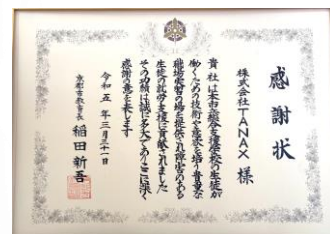 感謝状
株式会社TANAX 様
貴社は本市の総合支援学校の生徒が
働くための技術や意欲を培う貴重な
職場実習の場を提供され障害のある
生徒の就労支援に貢献されました
その功績は誠に多大でありここに深く
感謝の意を表します
令和五年三月三十一日
京都市教育長 稲田新吾